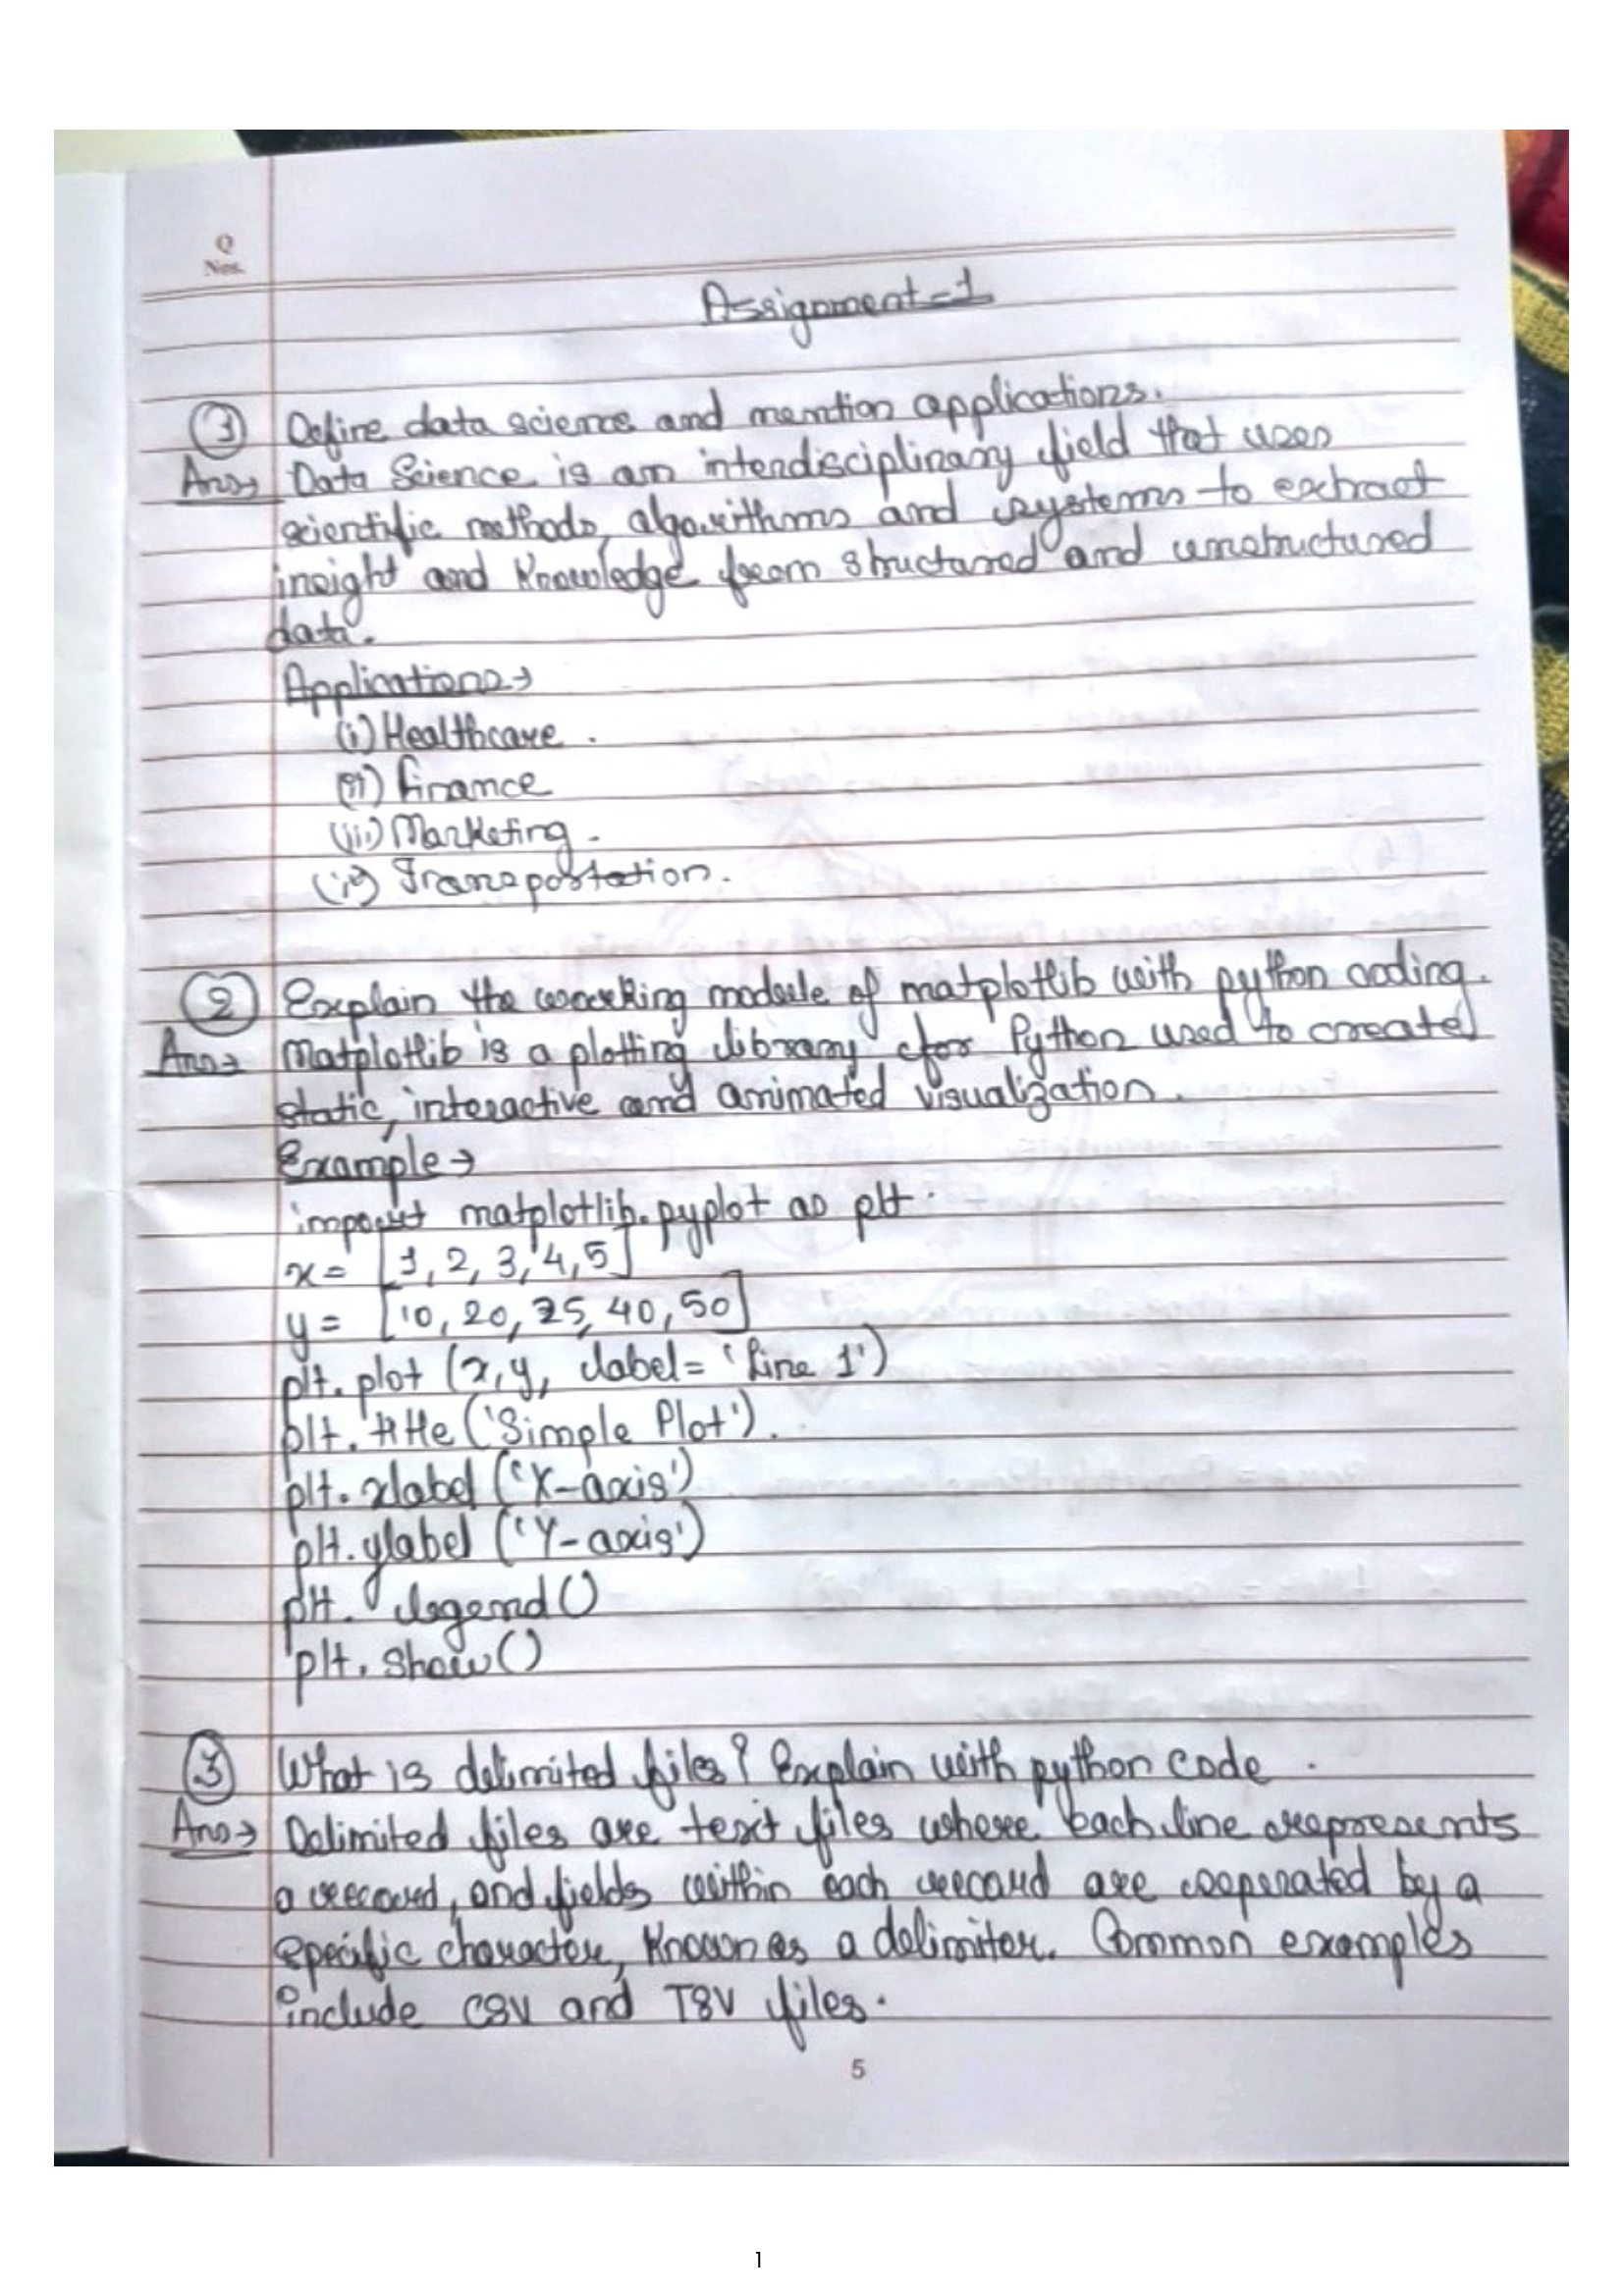 Q
Nos.
Assignment-1
① Define data science and mention applications.
Ans→ Data Science is an interdisciplinary field that uses
scientific methods, algorithms and systems to extract
insight and knowledge from structured and unstructured
data.
Applications→
(i) Healthcare.
(ii) Finance
(iii) Marketing.
(iv) Transportation.
② Explain the working module of matplotlib with python coding.
Ans→ Matplotlib is a plotting library for Python used to create
static, interactive and animated visualization.
Example→
import matplotlib.pyplot as plt.
x = [1, 2, 3, 4, 5]
y = [10, 20, 25, 40, 50]
plt.plot (x, y, label= 'Line 1')
plt.title ('Simple Plot').
plt.xlabel ('X-axis')
plt.ylabel ('Y-axis')
plt. legend ()
plt. show ()
③ What is delimited files? Explain with python code.
Ans→ Delimited files are text files where each line represents
a record, and fields within each record are seperated by a
specific character, known as a delimiter. Common examples
include CSV and TSV files.
5
1